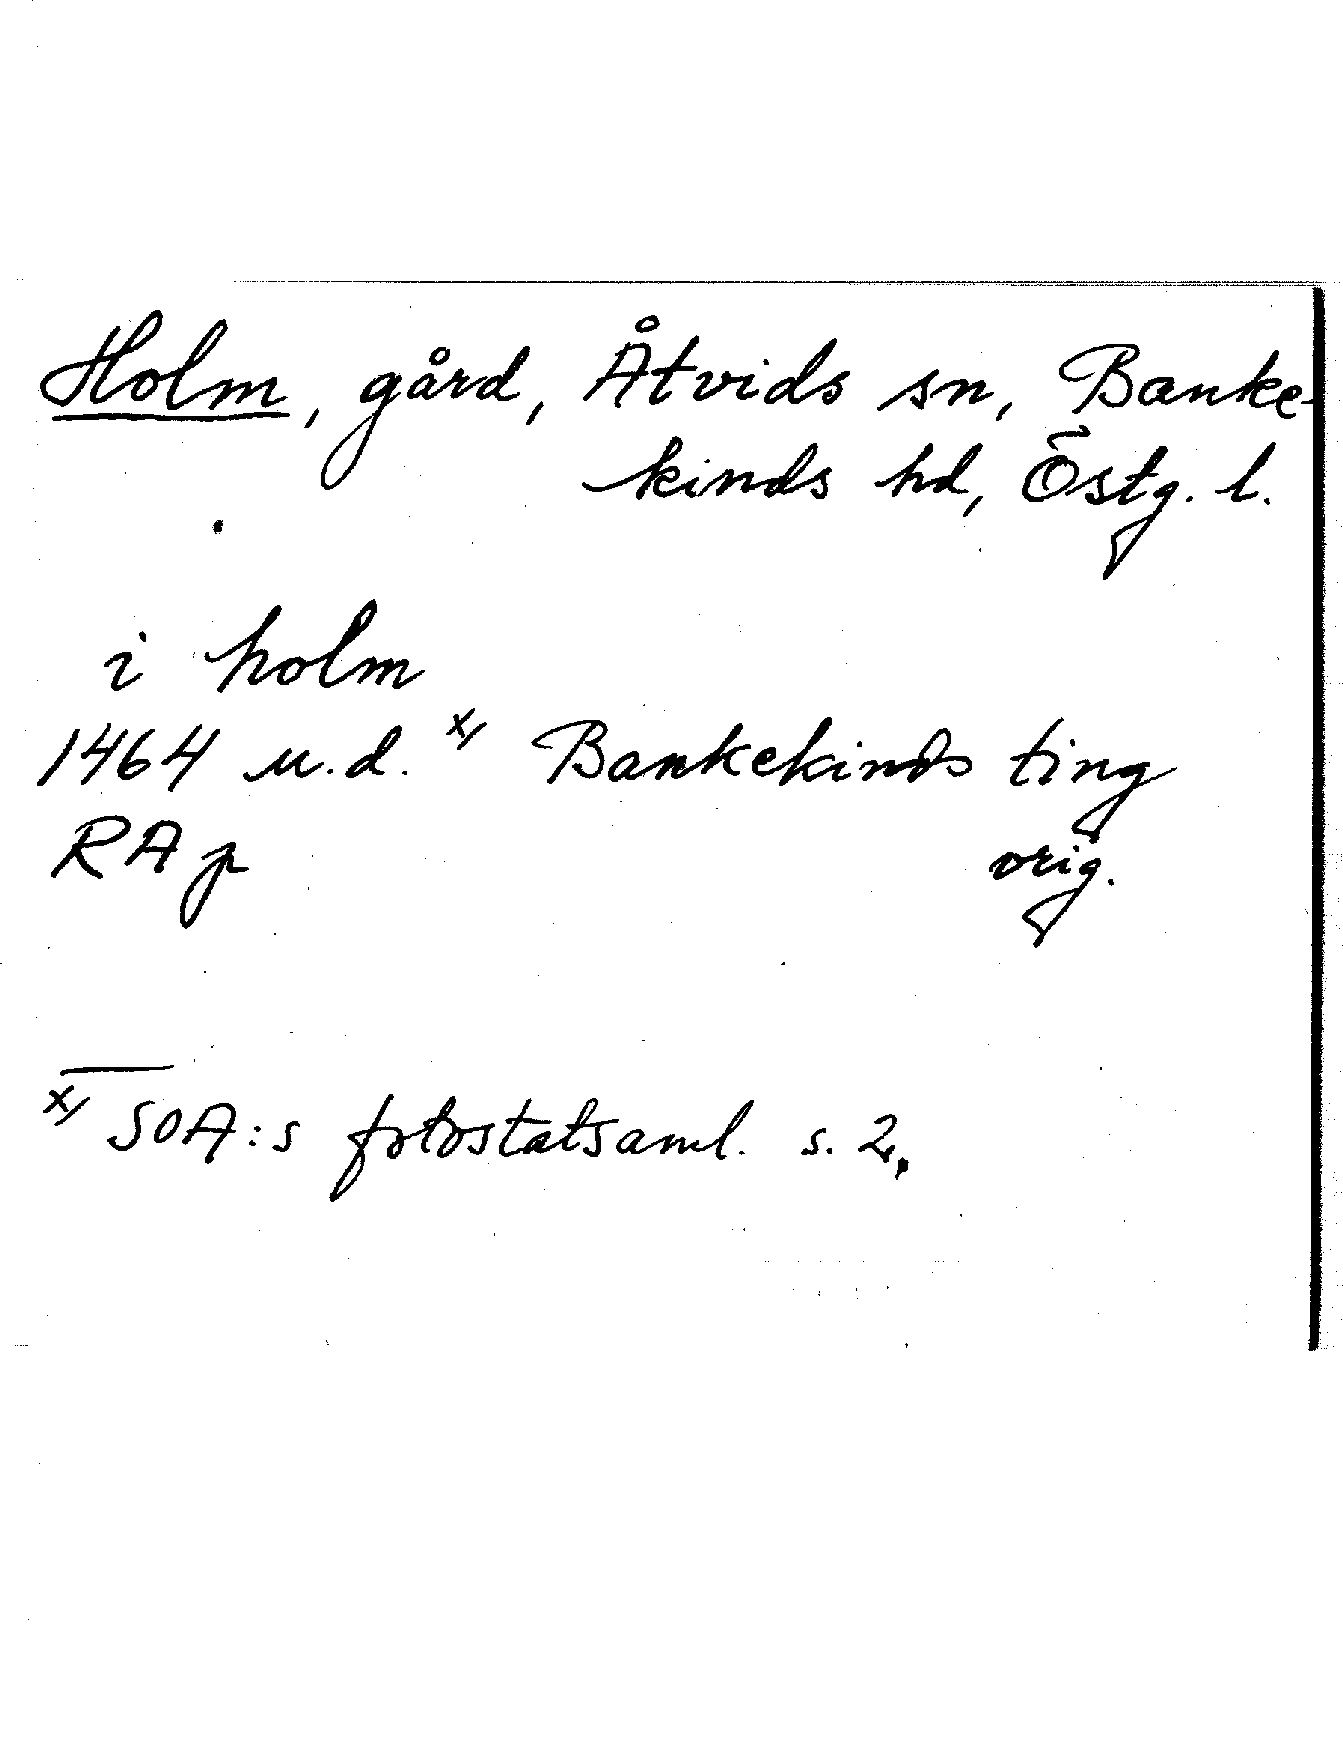 Holm, gård, Åtvids sn, Banke-
kinds hd, Östg. l.
i holm
1464 u.d. x) Bankekinds ting
RA p orig.
x) SOA:s fotostatsaml. s. 2.